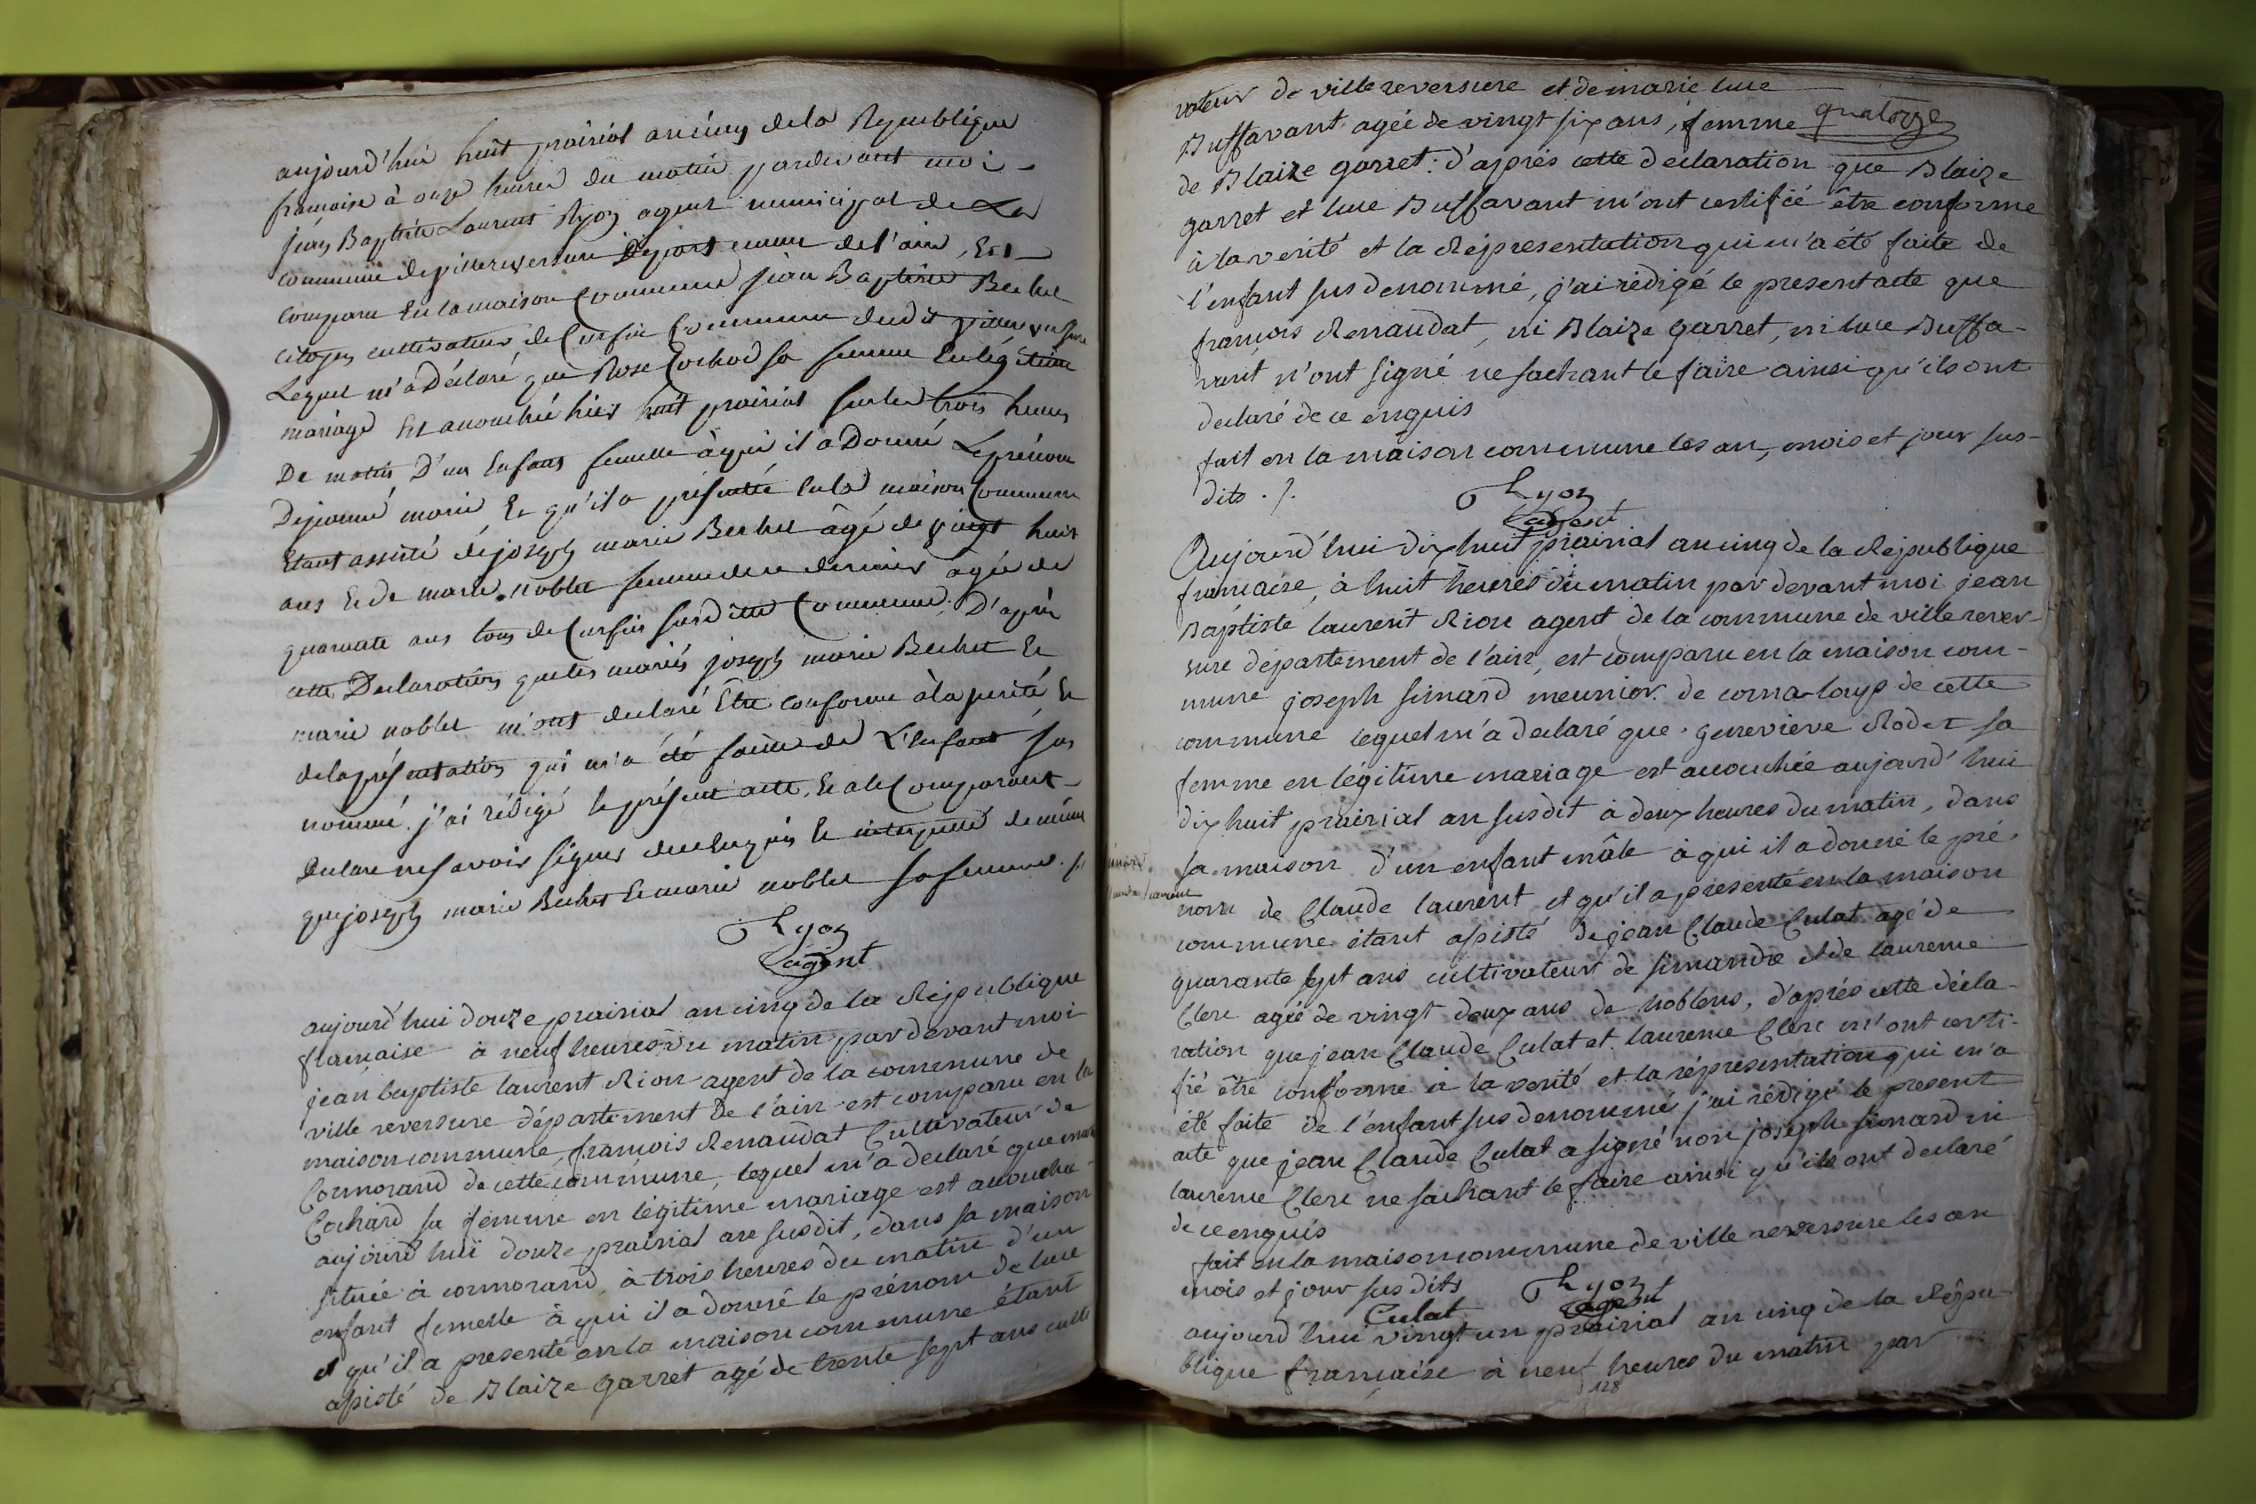 aujourd'hui huit prairial an cinq de la Republique
francaise à onze heures du matin pardevant moi
jean Baptiste Laurent Ryon agent municipal de La
commune de villereversure Departement de l'ain, Est
comparu En la maison Commune jean Baptiste Bechet
citoyen cultivateur de Curfin Commune dudit villereversure
Lequel m'a Déclaré que Rose Cochod sa femme En légitime
mariage Est accouchée hier huit prairial sur les trois heures
De matin D'un Enfant femelle à qui il a Donné Le prénom
De jeanne marie Et qu'il a presenté En la maison Commune
Etant assisté de joseph marie Bechet âgé de vingt huit
ans Et de marie noblet femme de ce dernier agée de
quarante ans tous de Curfin susditte Commune. D'après
cette Declaration que les mariés joseph marie Bechet Et
marie noblet m'ont declaré Etre conforme à la verité, Et
de la présentation qui m'a été faitte de L'Enfant sus
nommé j'ai rédigé le présent acte, Et a le Comparant
Declare ne savoir signer de ce Enquis Et interpellé de même
que joseph marie Bechet Et marie noblet sa femme
Ryon
agent
aujourd'hui douze prairial an cinq de la République
francaise à neuf heures du matin par devant moi
jean baptiste laurent Rion agent de la commune de
ville reversure département de l'ain est comparu en la
maison commune, francois Renaudat Cultivateur de
Cormorand de cette commune, lequel m'a declaré que marie
Cochard sa femme en légitime mariage est accouchée
aujourd'hui douze prairial an susdit, dans sa maison
située à cormorand à trois heures du matin d'un
enfant femelle à qui il a donné le prénom de luce
et qu'il a presenté en la maison commune étant
assisté de Blaize garret agé de trente sept ans culti
vateur de ville reversure et de marie luce
quatorze
Buffavant agée de vingt six ans, femme
de Blaize garret: d'après cette declaration que Blaize
garret et luce Buffavant m'ont certifié être conforme
à la verité et la Répresentation qui m'a été faite de
l'enfant sus denommé, j'ai rédigé le present acte que
francois Renaudat, ni Blaize garret, ni luce Buffa-
vant n'ont signé ne sachant le faire ainsi qu'ils ont
declaré de ce enquis
fait en la maison commune les an, mois et jour sus-
dits
Ryon
agent
Aujourd'hui dix huit prairial an cinq de la République
francaise, à huit heures du matin par devant moi jean
Baptiste laurent Rion agent de la commune de ville rever-
sure département de l'ain, est comparu en la maison com-
mune joseph simard meunier de corna-loup de cette
commune lequel m'a declaré que genevieve Rodet sa
femme en légitime mariage est accouchée aujourd'hui
dix huit prairial an susdit à deux heures du matin, dans
sa maison d'un enfant mâle à qui il a donné le pré-
nom de Claude laurent et qu'il a presenté en la maison
commune étant assisté de jean Claude Culat agé de
quarante sept ans cultivateur de simandre et de laurence
Clerc agée de vingt deux ans de noblens, d'après cette décla-
ration que jean Claude Culat et laurence Clerc m'ont certi-
fié être conforme à la verité et la répresentation qui m'a
été faite de l'enfant sus denommé j'ai rédigé le present
acte que jean Claude Culat a signé non joseph simard ni
laurence Clerc ne sachant le faire ainsi qu'ils ont declaré
de ce enquis
fait en la maison commune de ville reversure les an
mois et jour sus dits
Culat
Ryon
agent
aujourd'hui vingt un prairial an cinq de la Répu-
blique française à neuf heures du matin par
128